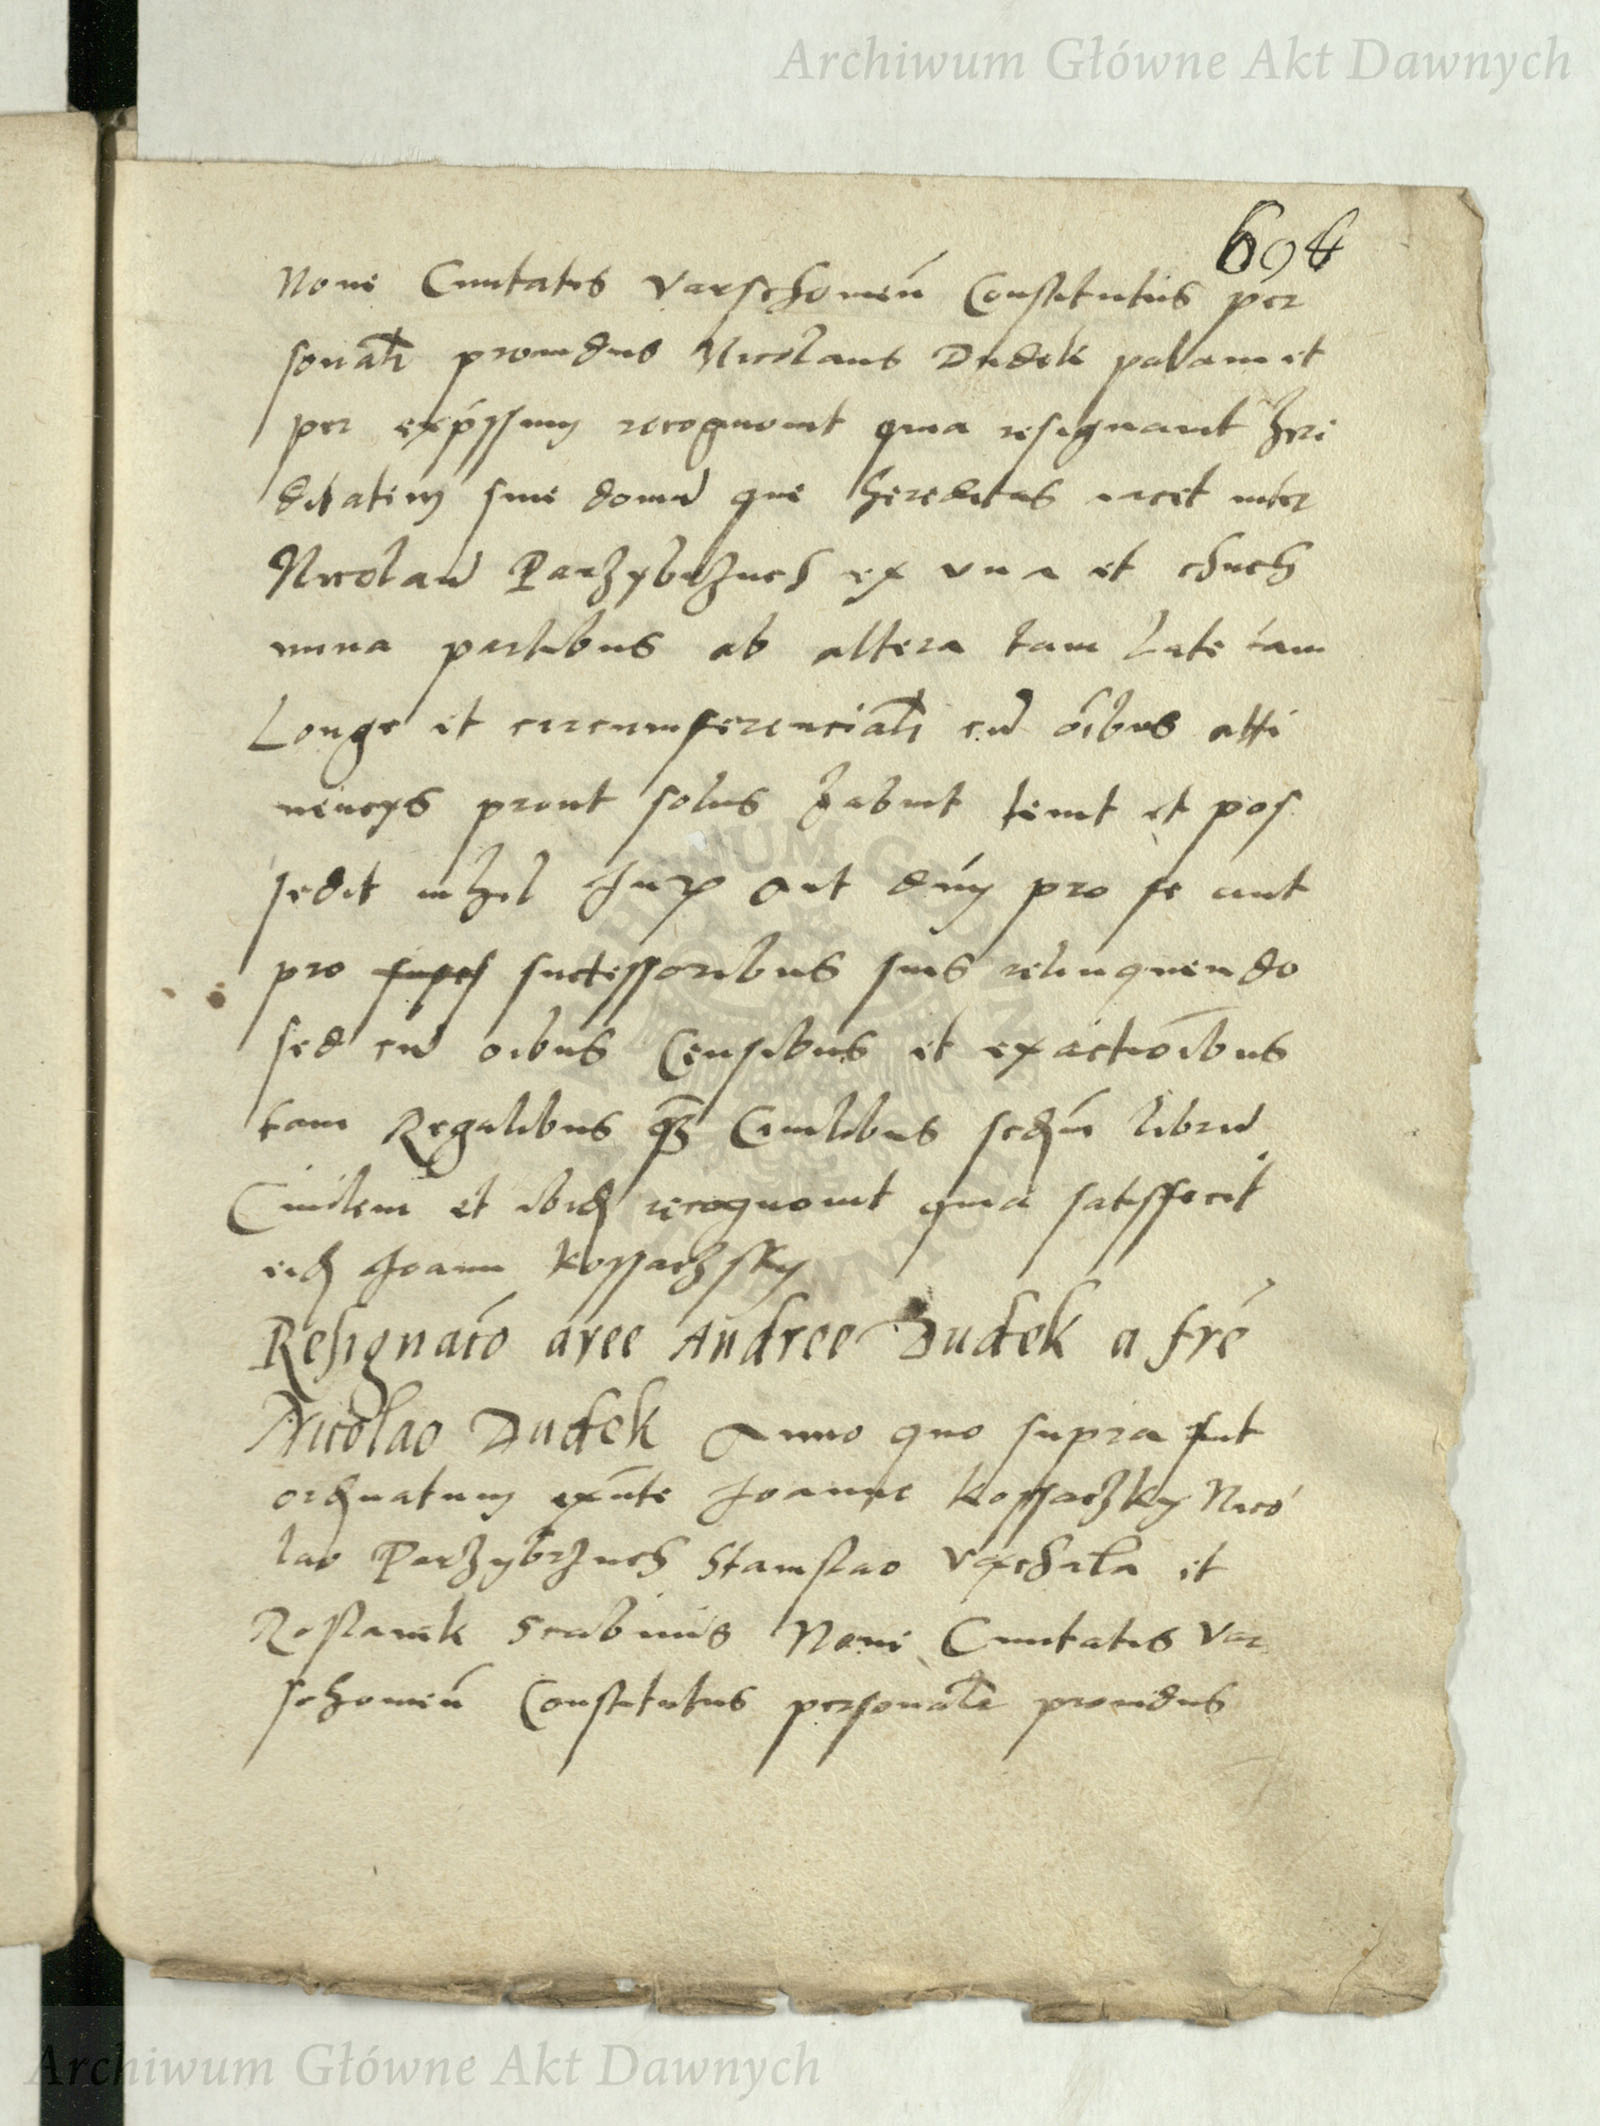 Archiwum Główne Akt Dawnych
606
Noue Ciuitatis Varschouień Constitutus per
sonalr prouidus Nicolaus Dudek palam et
per expssum recognouit quia resignauit here
ditatem siue domū que hereditas iacet inter
Nicolaū Parzybrzuch ex vna et chuch
nina partibus ab altera tam late tam
Longe et circumferencialr cū oibus atti
nencys prout solus habuit tenuit et pos
sedit nihil Jurs aut dny pro se aut
pro successoribus suis relinquendo
sed cū oibus Censibus et exactioibus
tam Regalibus qz Ciuilibus scdm librū
Ciuilem et ibid recognouit quia satisffecit
eid Joanni Kossaczsky
Resignaco aree Andree Dudek a fre
Nicolao Dudek Anno quo supra fuit
ordnatum exnte Joanne Kossaczky Nico
lao Parzybrzuch Stanislao et
Roslaniek Scabinis Noue Ciuitatis Var
schouień Constitutus personalr prouidus
Archiwum Główne Akt Dawnych